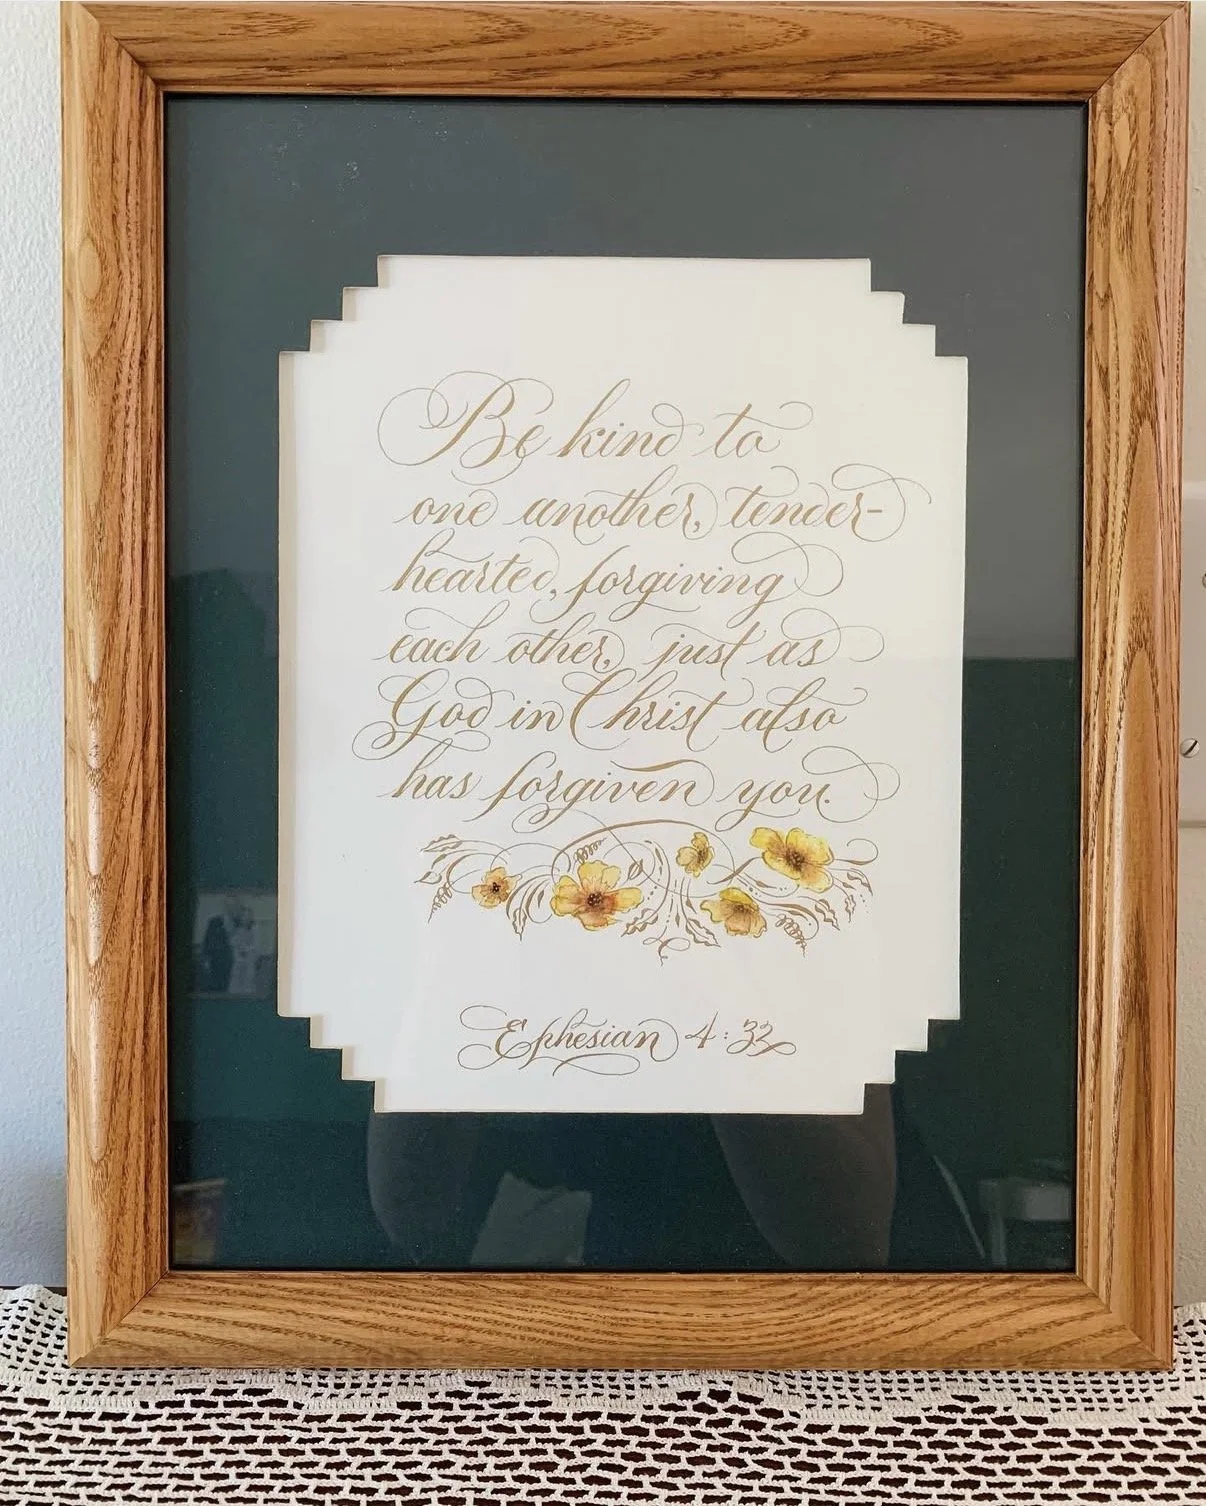 Be kind to
one another, tender-
hearted, forgiving
each other, just as
God in Christ also
has forgiven you.
Ephesian 4:32